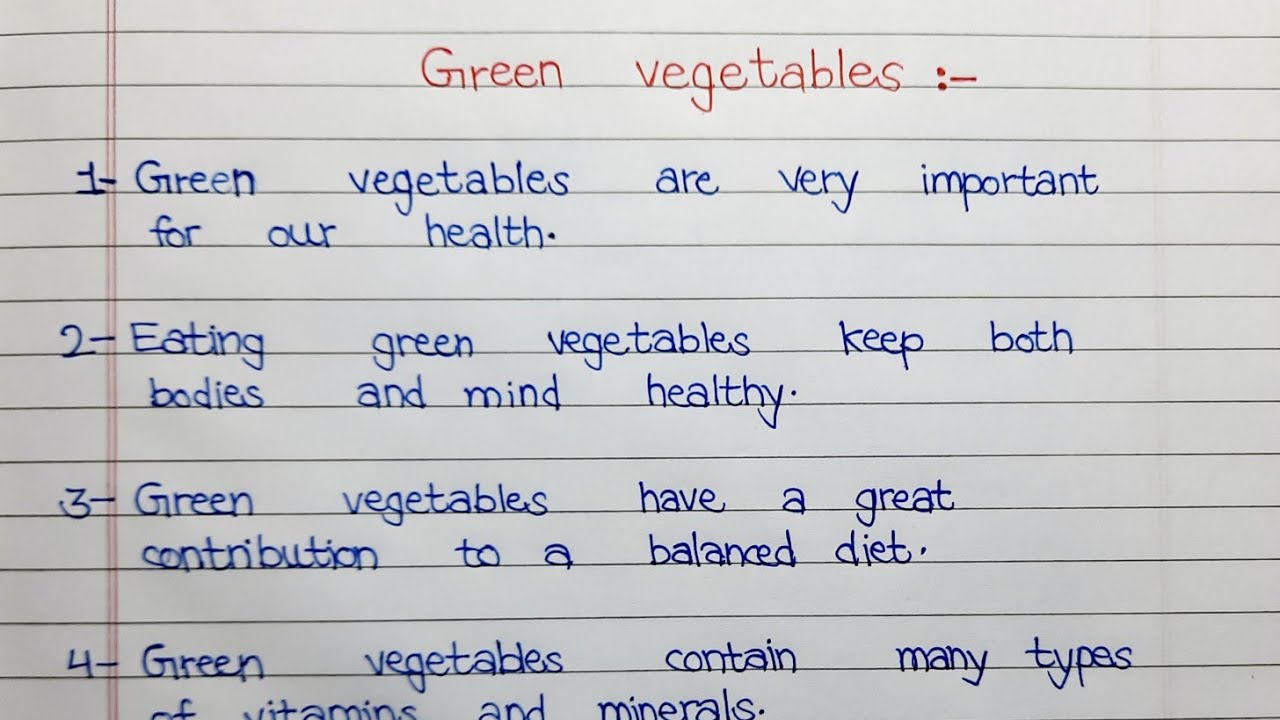 Green vegetables :-
1- Green vegetables are very important
for our health.
2- Eating green vegetables keep both
bodies and mind healthy.
3- Green vegetables have a great
contribution to a balanced diet.
4- Green vegetables contain many types
of vitamins and minerals.